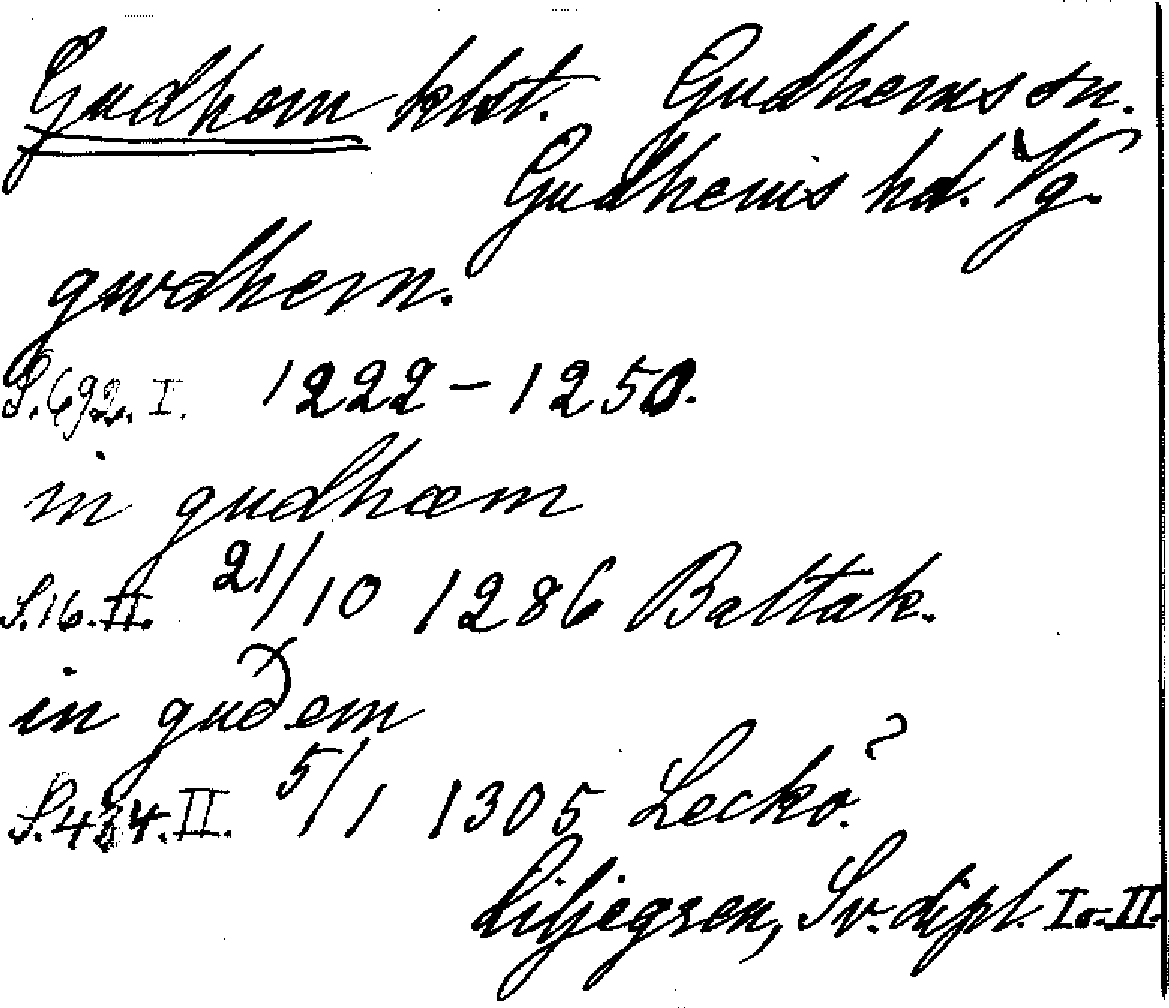 Gudhem klst. Gudhems sn.
Gudhems hd. Vg.
gwdhem.
S. 692. I. 1222-1250.
in gudhæm
S. 16. II. 21/10 1286 Baltak.
in guðem
S. 434. II. 5/1 1305 Leckö?
Liljegren, Sv. dipl. I o. II.